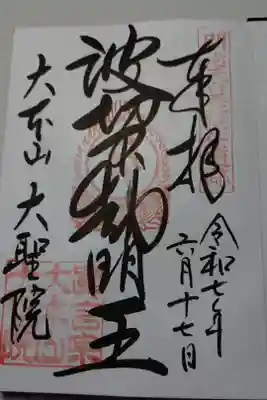 奉拝
令和七年
六月十七日
波切不動明王
大本山 大聖院